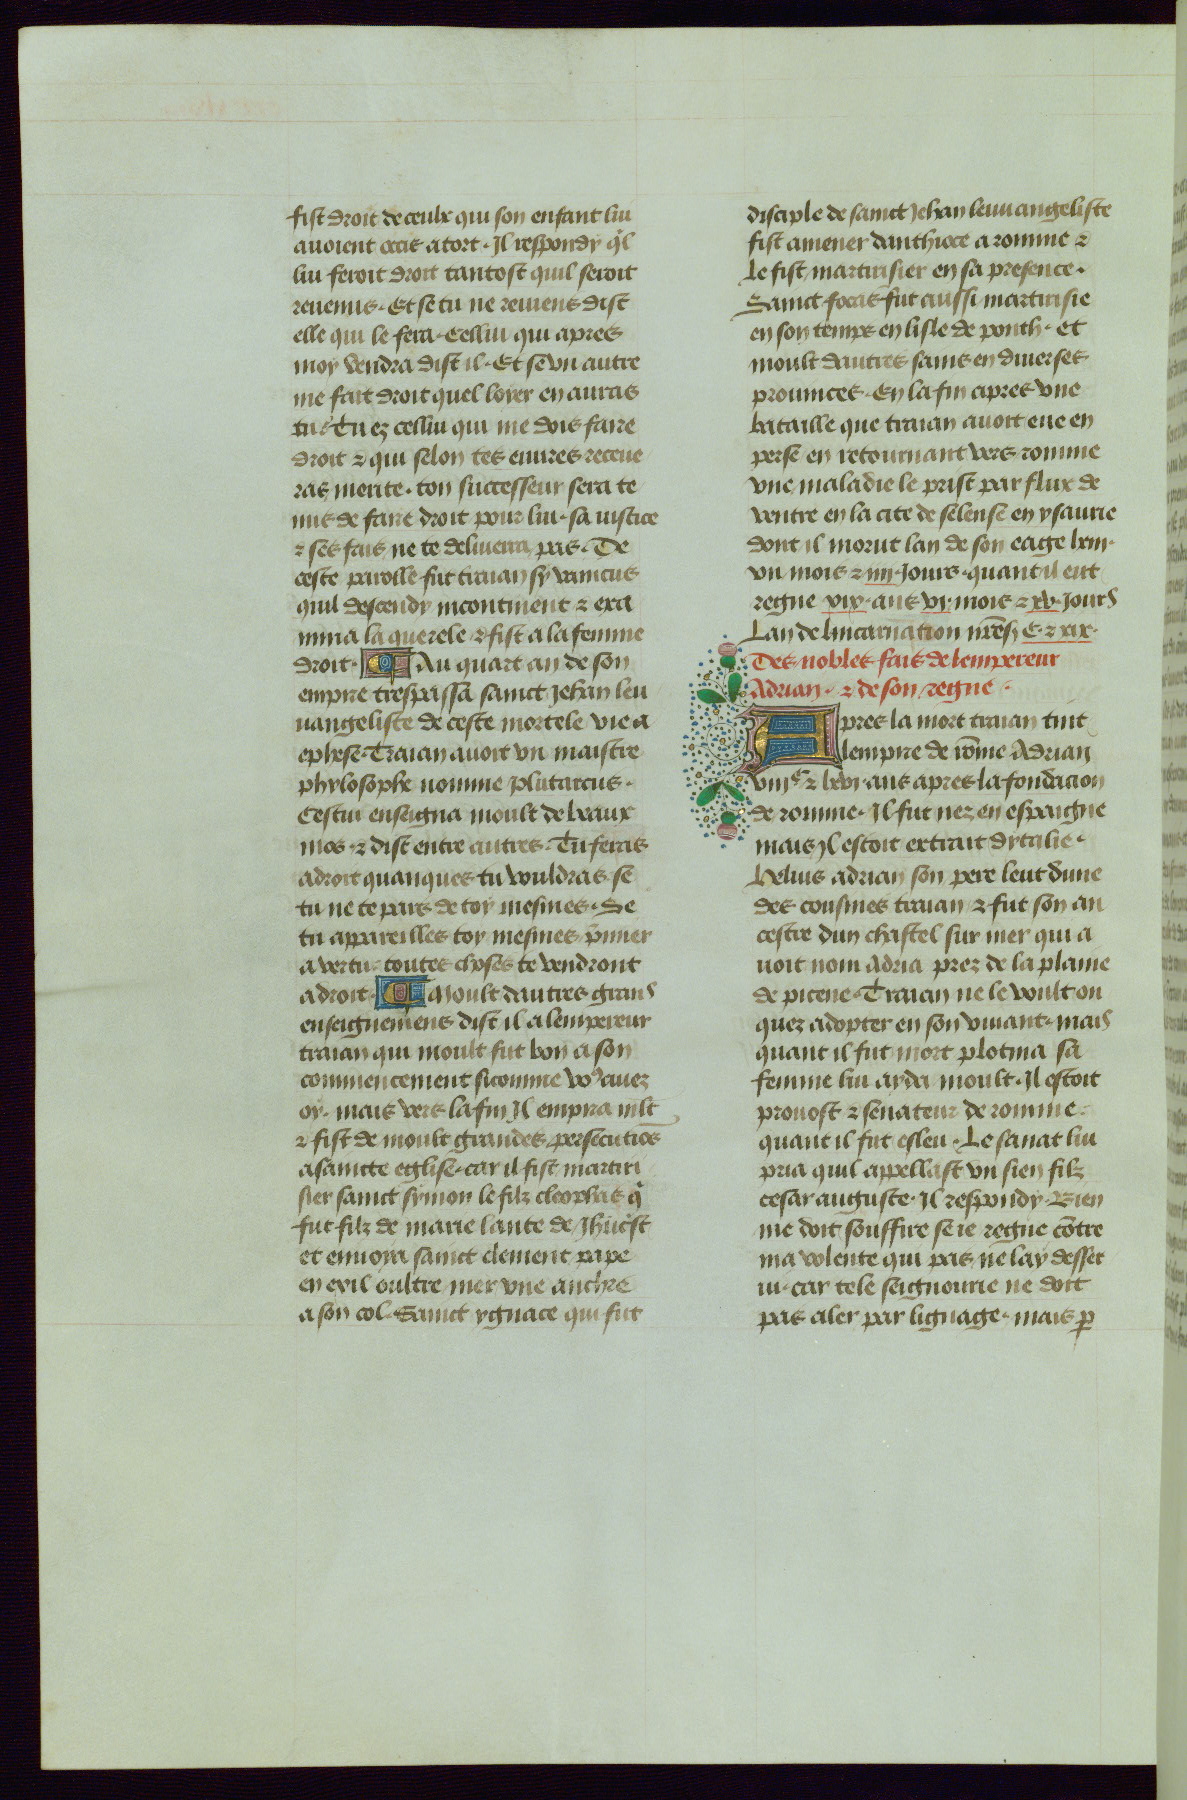 fist droit de ceulx qui son enfant lui
auoient occis a tort. Il respondy q̄l
lui feroit droit tantost quil seroit
reuenus. Et se tu ne reuiens dist
elle qui le fera. Cellui qui apres
moy vendra dist il. Et se vn autre
me fait droit quel loyer en auras
tu. Tu ez cellui qui me dois faire
droit ⁊ qui selon tes euures receue
ras merite. ton successeur sera te
nus de faire droit pour lui. sa iustice
⁊ ses fais ne te deliuerra pas. De
ceste parolle fut traian sy vaincus
quil descendy incontinent ⁊ exa
mina la querele ⁊ fist a la femme
droit. Au quart an de son
empire trespassa sainct Jehan leu
uangeliste de ceste mortele vie a
ephese. Traian auoit vn maistre
phylosophe nomme Plutarcus.
Cestui enseigna moult de beaux
mos. ⁊ dist entre autres. Tu feras
adroit quanques tu vouldras se
tu ne te pars de toy mesmes. Se
tu appareilles toy mesmes p̄mier
a vertu. toutes choses te vendront
a droit. Moult dautres grans
enseignemens dist il a lempereur
traian qui moult fut bon a son
commencement sicomme voꝰ auez
oy. mais vers la fin Il empira mlt
⁊ fist de moult grandes persecutiōs
a saincte eglise. car il fist martiri
sier sainct symon le filz cleophas q̇
fut filz de marie lante de Jhūcst
et enuoya sainct clement pape
en exil oultre mer vne anchre
a son col. Sainct ygnace qui fut
disciple de sainct Jehan leuuangeliste
fist amener danthioce a romme ⁊
le fist martirisier en sa presence.
Sainct focas fut aussi martirisie
en son temps en lisle de ponth. et
moult dautres sains en diuerses
prouinces. En la fin apres vne
bataille que traian auoit eue en
perse en retournant vers romme
vne maladie le prist par flux de
ventre en la cite de selense en ysaurie
dont il morut lan de son eage lxiii.
vn mois ⁊ iiii. Jours. quant il eut
regne xix. ans vi. mois ⁊ xv. Jours
Lan de lincarnation nr̄es C. ⁊ xix.
Des nobles fais de lempereur
Adrian. ⁊ de son regne.
Apres la mort traian tint
lempire de rōme Adrian
viiiᶜ ⁊ lxvi. ans apres la fondacion
de romme. Il fut nez en espaigne
mais Il estoit extrait dytalie.
Helius adrian son pere leut dune
des cousines traian ⁊ fut son an
cestre dun chastel sur mer qui a
uoit nom Adria prez de la plaine
de picene. Traian ne le voult on
quez adopter en son viuant. mais
quant il fut mort plotina sa
femme lui ayda moult. Il estoit
prouost ⁊ senateur de romme
quant il fut esleu. Le sanat lui
pria quil appellast vn sien filz
cesar auguste. Il respondy. Bien
me doit souffire se ie regne cōtre
ma volente qui pas ne lay desser
ui. car tele seignourie ne doit
pas aler par lignage. mais ꝑ